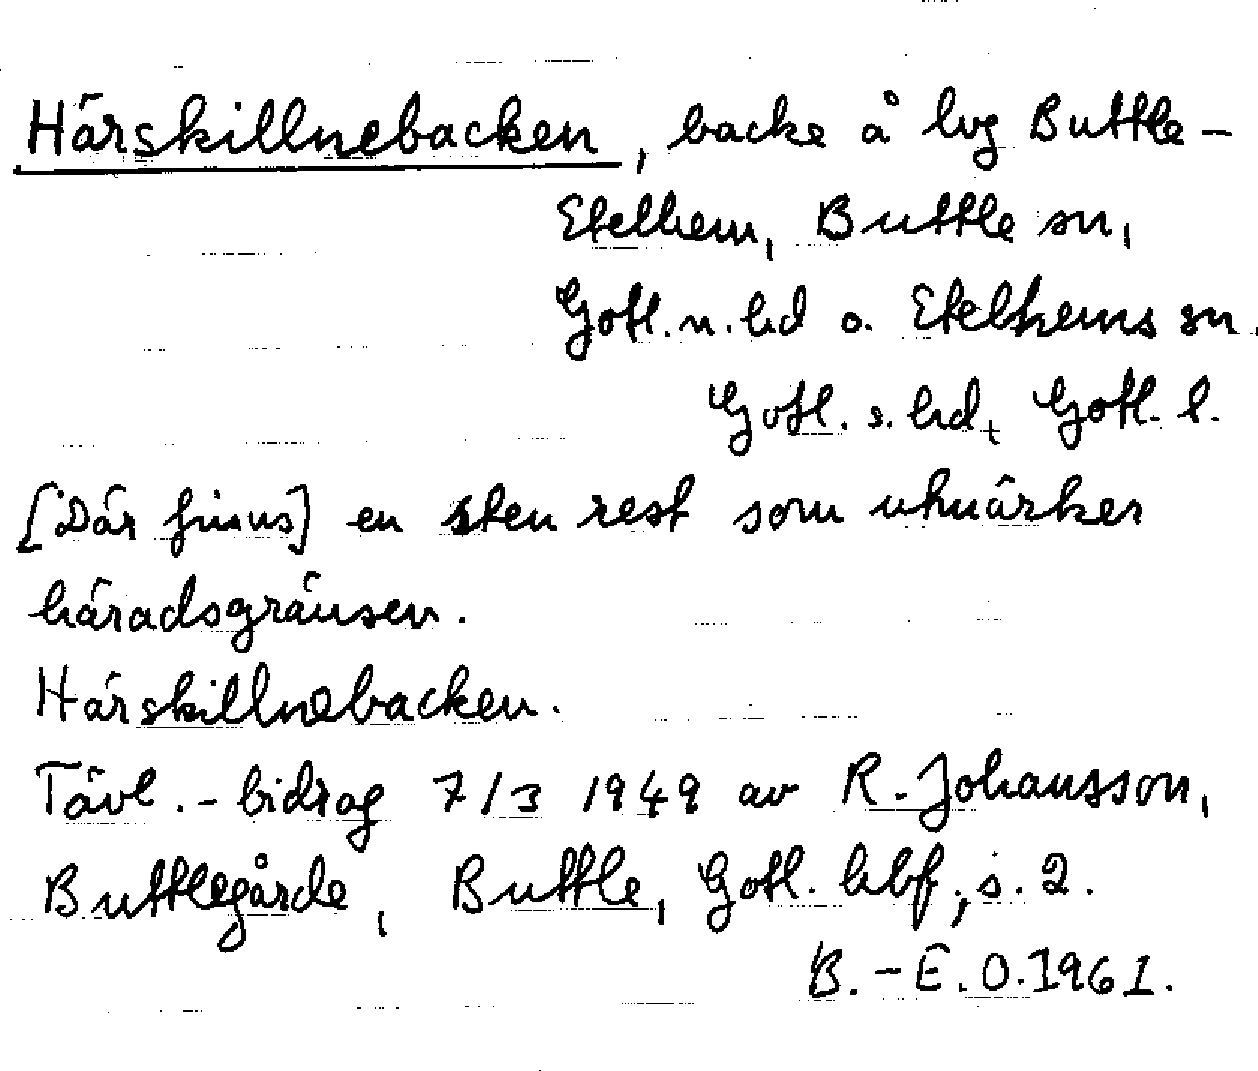 Härskillnebacken, backe å lvg Buttle-
Etelhem, Buttle sn,
Gotl. n. hd o. Etelhems sn.
Gotl. s. hd, Gotl. l.
[Där finns] en sten rest som utmärker
häradsgränsen.
Härskillnebacken.
Tävl.-bidrag 7/3 1949 av R. Johansson,
Buttlegårde, Buttle, Gotl. hbf, s. 2.
B.-E. O. 1961.